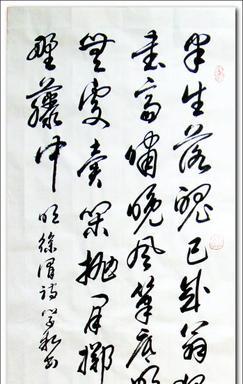 半生落魄已成翁
書齋嘯晚風筆底明
無處賣閒抛閒擲
野藤中
明徐渭詩